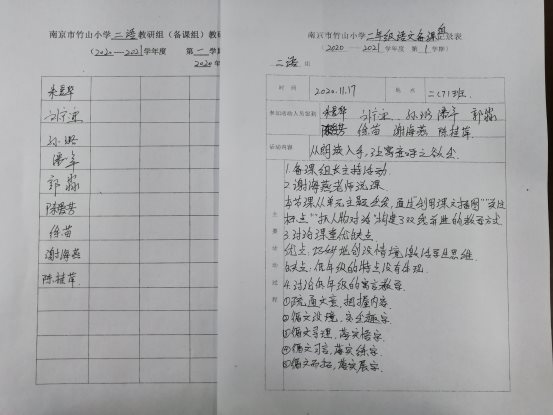 南京市竹山小学二语教研组（备课组）教研
（2020—2021学年度 第一学期
2020年
刘宁宝
孙璐
潘军
郭淼
陈爱芳
徐苗
谢海燕
陈桂萍
南京市竹山小学二年级语文备课组记录表
（2020—2021学年度 第1学期）
二语组
时间 2020.11.17 地点 二（7）班
参加活动人员签到 孙璐 潘军 郭淼
陈爱芳 徐苗 谢海燕 陈桂萍
活动内容 从朗读入手，让寓言
主要活动过程
1.备课组长主持活动
2.谢海燕老师说课
本节课从单元主题出发，通过"利用课文插图""关注
标点""抓人物对话"构建了双线并进的教学方式
3.讨论课堂优缺点
优点：巧妙地创设情境，激活学生思维
缺点：低年级的特点没有体现
4.讨论低年级的寓言教学
①疏通文意，把握内容
②循文设境，突出趣字
③循文寻理，落实悟字
④循文习言，落实练字
⑤循文而拓，落实展字